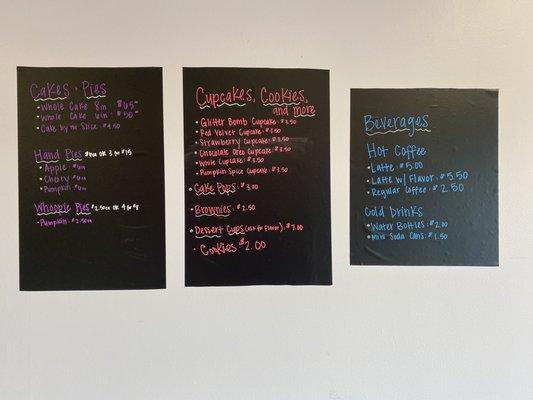 Cakes + Pies
• Whole Cake 8in: $65
• Whole Cake 6in: $50
• Cake by the Slice: $4.50
Hand Pies $6ea OR 3 for $15
• Apple: $6ea
• Cherry: $6ea
• Pumpkin: $6ea
Whoopie Pies $2.50ea OR 4 for $8
• Pumpkin: $2.50ea
Cupcakes, Cookies,
and more
• Glitter Bomb Cupcake: $3.50
• Red Velvet Cupcake: $3.50
• Strawberry Cupcake: $3.50
• Chocolate Oreo Cupcake: $3.50
• White Cupcake: $3.50
• Pumpkin Spice Cupcake: $3.50
• Cake Pops: $3.00
• Brownies: $2.50
• Dessert Cups (ask for flavor): $7.00
• Cookies: $2.00
Beverages
Hot Coffee
• Latte: $5.00
• Latte w/ Flavor: $5.50
• Regular Coffee: $2.50
Cold Drinks
• Water Bottles: $2.00
• Mini Soda Cans: $1.50